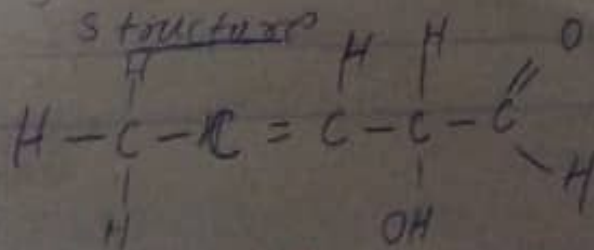 Structure
H H H O
H - C - C = C - C - C
H OH H